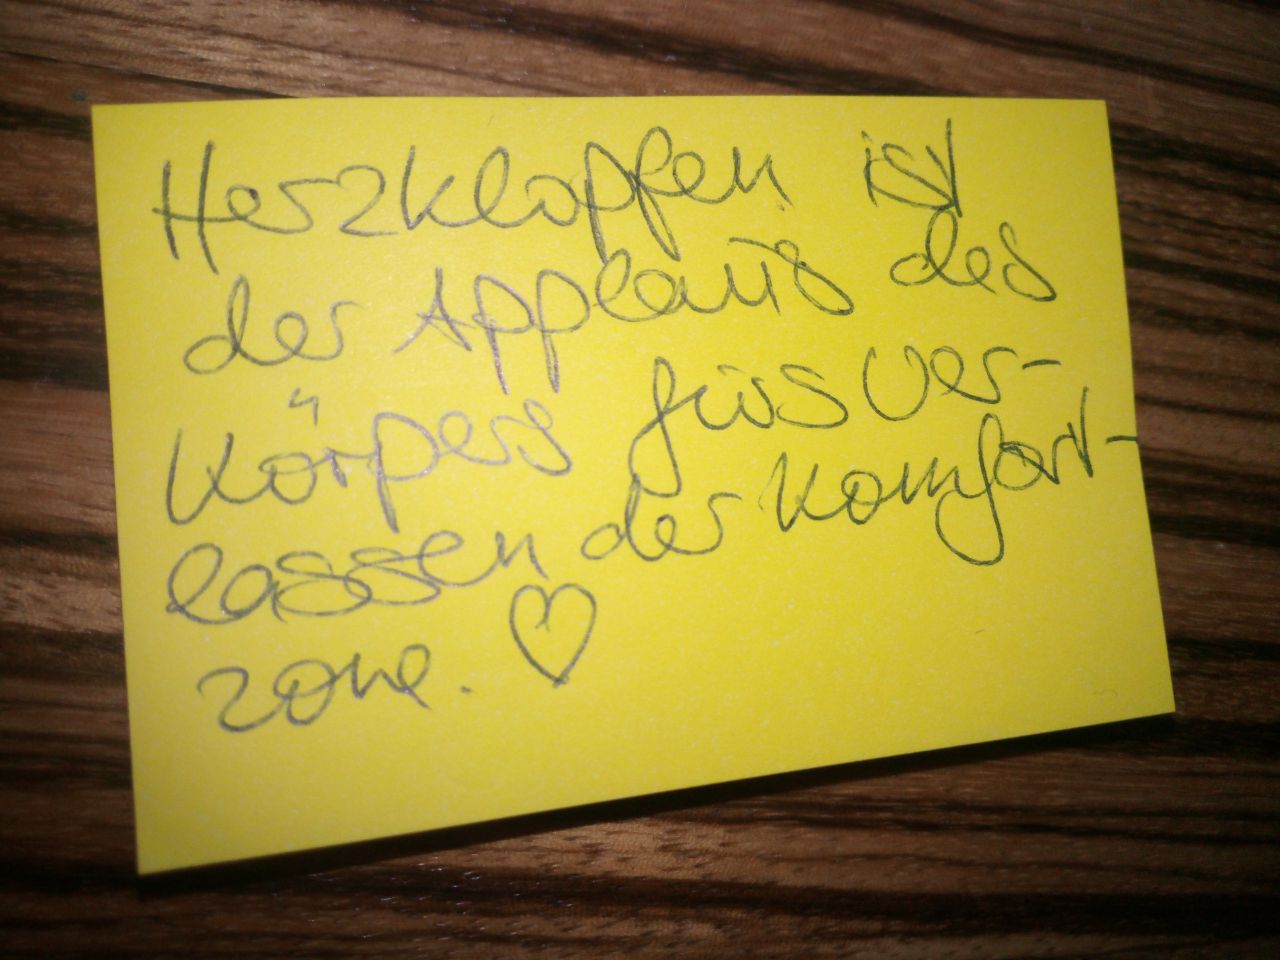 Herzklopfen ist
der Applaus des
Körpers fürs Ver-
lassen der Komfort-
zone. ♡